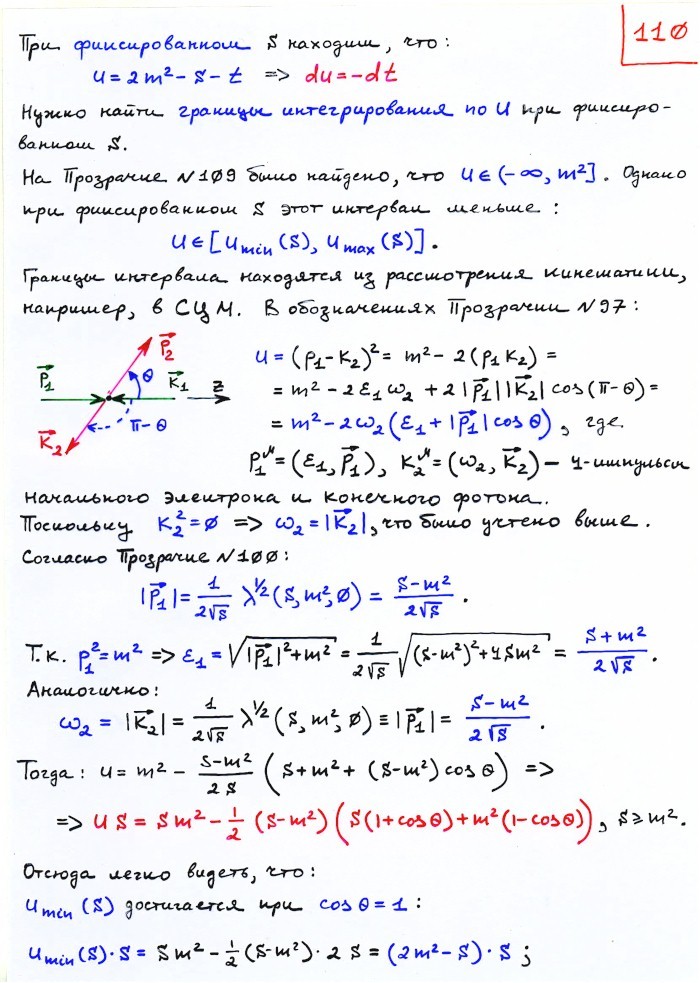 110
При фиксированном s находим, что:
u = 2m² - s - t => du = -dt
Нужно найти границы интегрирования по u при фиксиро-
ванном s.
На Прозрачке №109 было найдено, что u ∈ (-∞, m²]. Однако
при фиксированном s этот интервал меньше:
u ∈ [u_min(s), u_max(s)].
Границы интервала находятся из рассмотрения кинематики,
например, в СЦМ. В обозначениях Прозрачки №97:
p⃗₂
p⃗₁ θ k⃗₁ z
π-θ
k⃗₂
u = (p₁-k₂)² = m² - 2(p₁k₂) =
= m² - 2ε₁ω₂ + 2|p⃗₁||k⃗₂| cos(π-θ) =
= m² - 2ω₂(ε₁ + |p⃗₁| cos θ), где
p₁^μ = (ε₁, p⃗₁), k₂^μ = (ω₂, k⃗₂) – 4-импульсы
начального электрона и конечного фотона.
Поскольку k₂² = 0 => ω₂ = |k⃗₂|, что было учтено выше.
Согласно Прозрачке №100:
|p⃗₁| = 1/(2√s) λ^{1/2}(s, m², 0) = (s-m²)/(2√s).
Т.к. p₁² = m² => ε₁ = √(|p⃗₁|² + m²) = 1/(2√s) √((s-m²)² + 4sm²) = (s+m²)/(2√s).
Аналогично:
ω₂ = |k⃗₂| = 1/(2√s) λ^{1/2}(s, m², 0) ≡ |p⃗₁| = (s-m²)/(2√s).
Тогда: u = m² - (s-m²)/(2s) (s + m² + (s-m²) cos θ) =>
=> us = sm² - 1/2 (s-m²)(s(1+cos θ) + m²(1-cos θ)), s ≥ m².
Отсюда легко видеть, что:
u_min(s) достигается при cos θ = 1:
u_min(s)·s = sm² - 1/2 (s-m²)·2s = (2m²-s)·s;